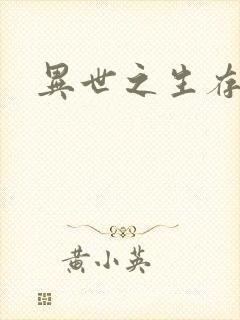 異世之生存
黄小英